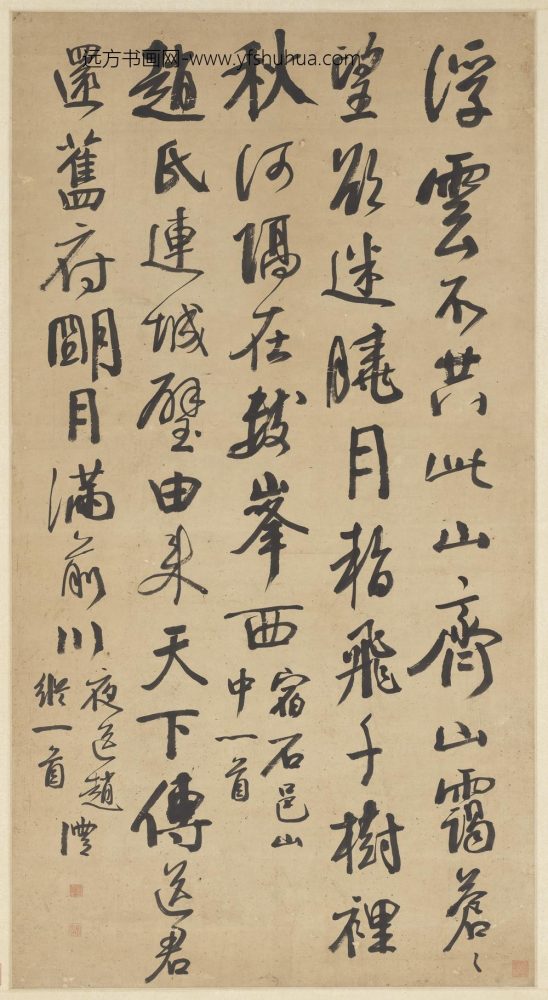 远方书画网-www.yfshuhua.com
浮雲不共此山齊山靄蒼〻
望欲迷曉月暫飛千樹裡
秋河隔在數峯西
宿石邑山
中一首
趙氏連城璧由來天下傳送君
還舊府朙月滿前川
夜送趙
縱一首